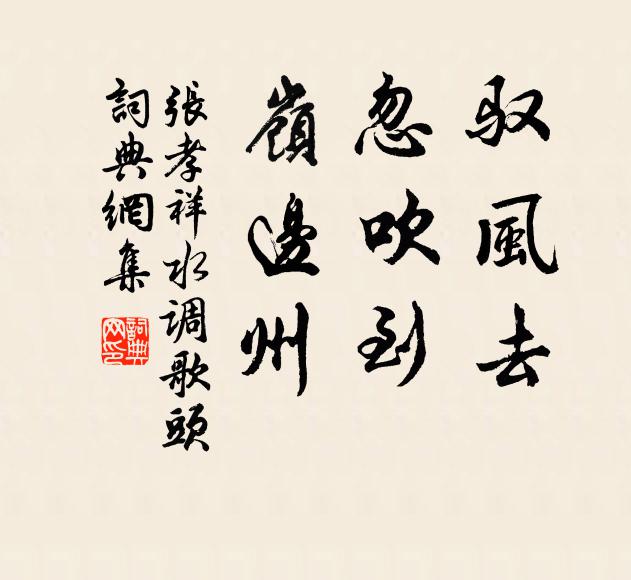 驭風去
忽吹到
嶺邊州
張孝祥水调歌頭
詞典網集
詞典
网印